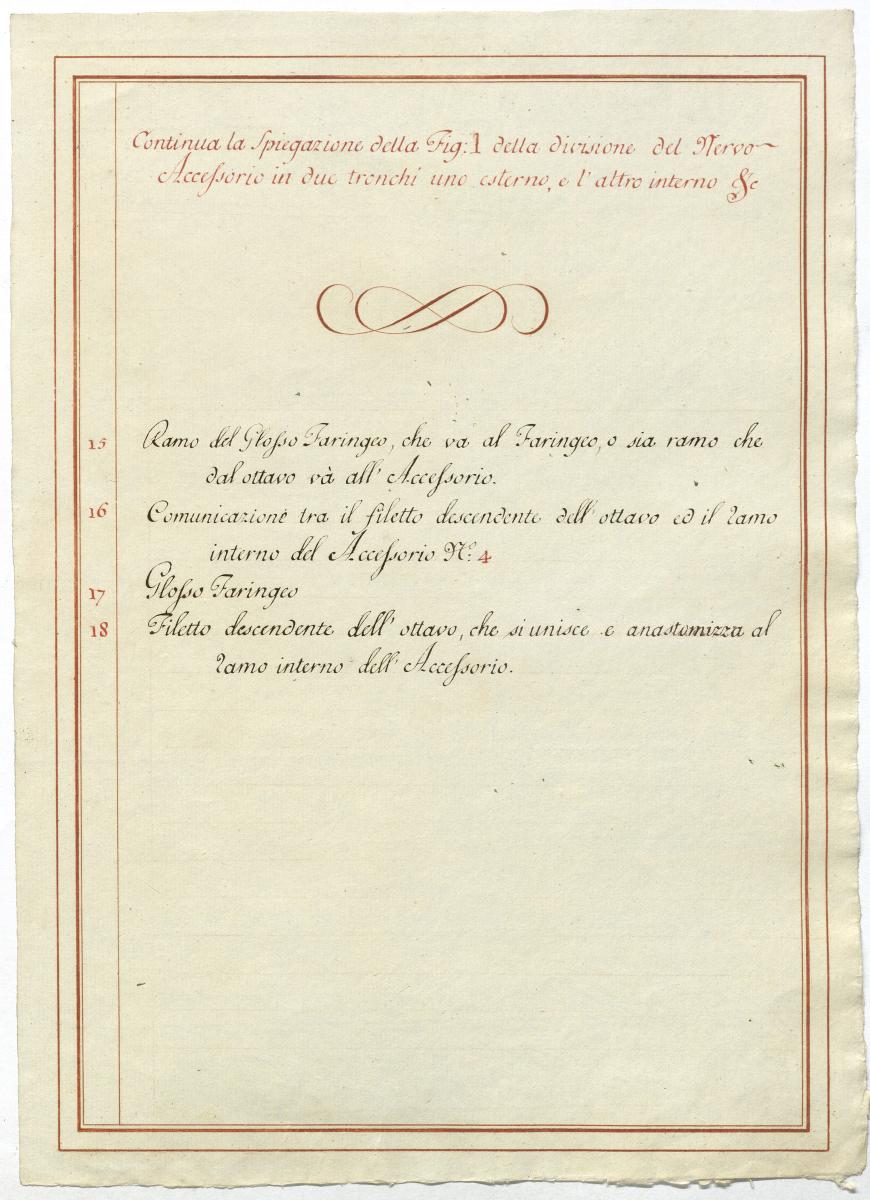 Continua la Spiegazione della Fig: 1 della divisione del Nervo
Accessorio in due tronchi uno esterno, e l' altro interno &c
15 Ramo del Glosso Faringeo, che và al Faringeo, o sia ramo che
dal ottavo và all' Accessorio.
16 Comunicazione tra il filetto descendente dell' ottavo ed il ramo
interno del Accessorio N.º 4
17 Glosso Faringeo
18 Filetto descendente dell' ottavo, che si unisce e anastomizza al
ramo interno dell' Accessorio.